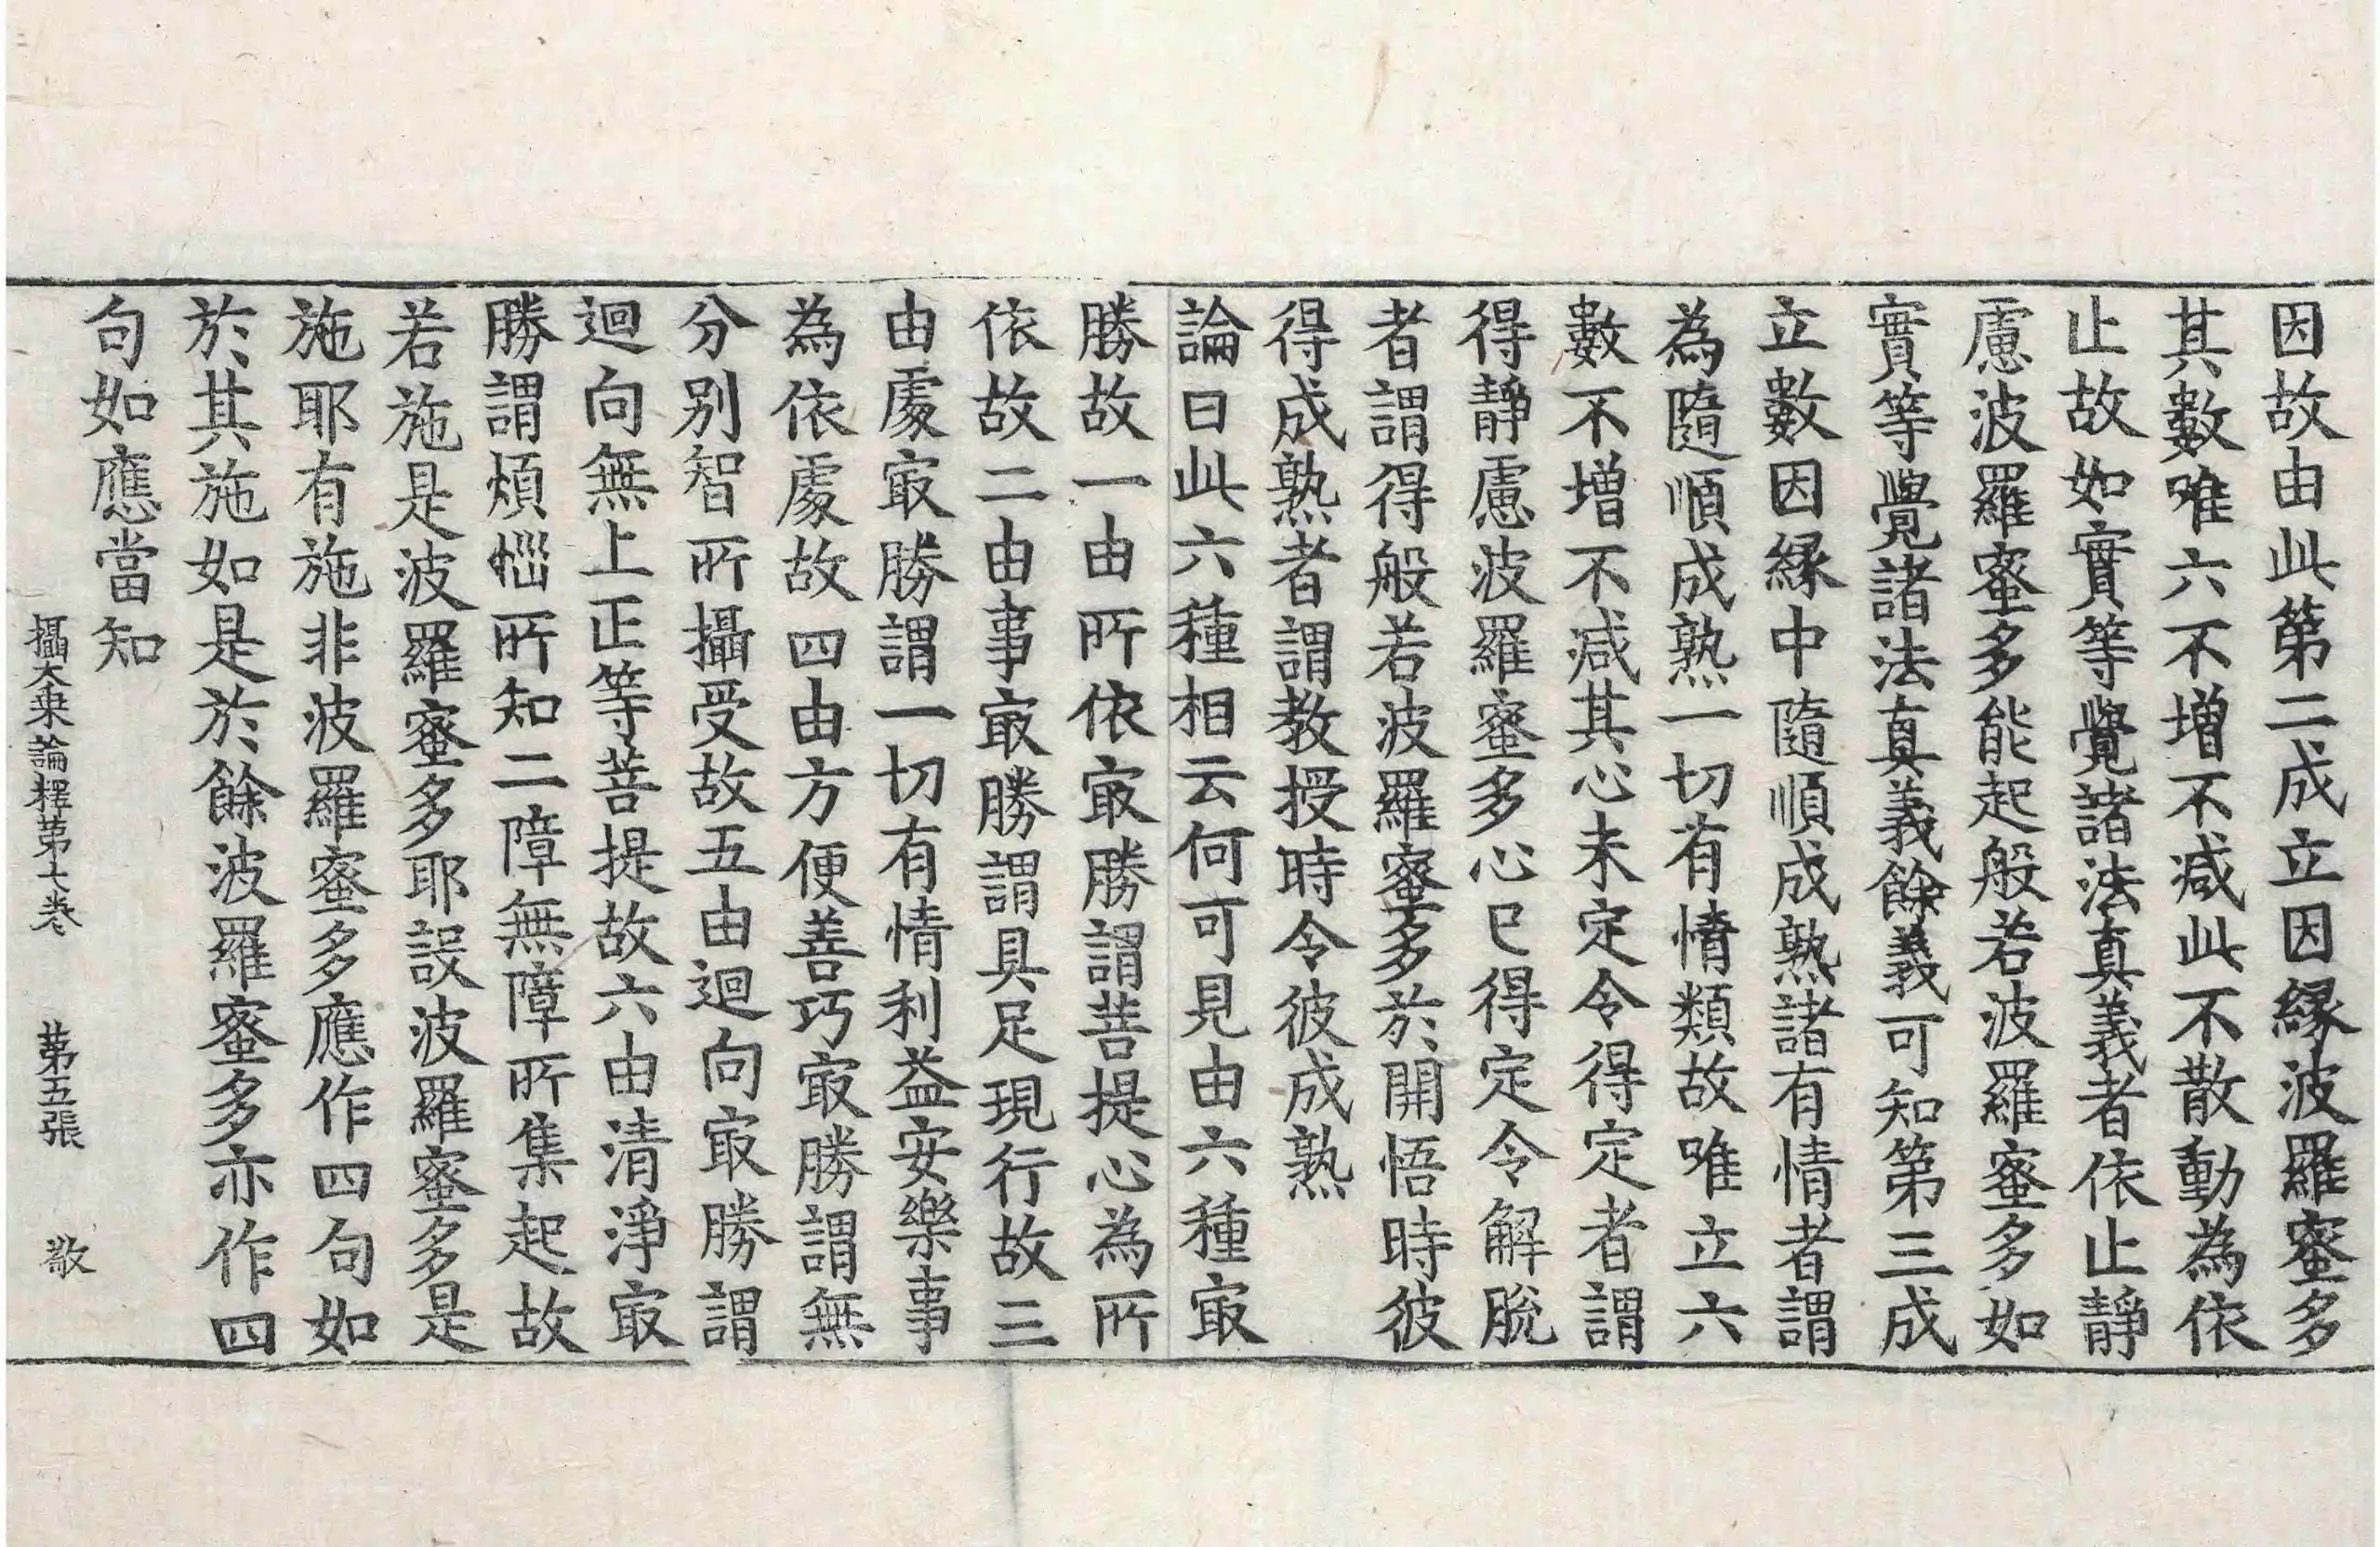 因故由此第二成立因縁波羅蜜多
其數唯六不增不減此不散動為依
止故如實等覺諸法真義者依止靜
慮波羅蜜多能起般若波羅蜜多如
實等覺諸法真義餘義可知第三成
立數因縁中隨順成熟諸有情者謂
為隨順成熟一切有情類故唯立六
數不增不減其心未定令得定者謂
得靜慮波羅蜜多心已得定令解脫
者謂得般若波羅蜜多於開悟時彼
得成熟者謂教授時令彼成熟
論曰此六種相云何可見由六種㝡
勝故一由所依㝡勝謂菩提心為所
依故二由事㝡勝謂具足現行故三
由處㝡勝謂一切有情利益安樂事
為依處故四由方便善巧㝡勝謂無
分別智所攝受故五由迴向㝡勝謂
迴向無上正等菩提故六由清淨㝡
勝謂煩惱所知二障無障所集起故
若施是波羅蜜多耶設波羅蜜多是
施耶有施非波羅蜜多應作四句如
於其施如是於餘波羅蜜多亦作四
句如應當知
攝大乗論釋第七卷 第五張 敬